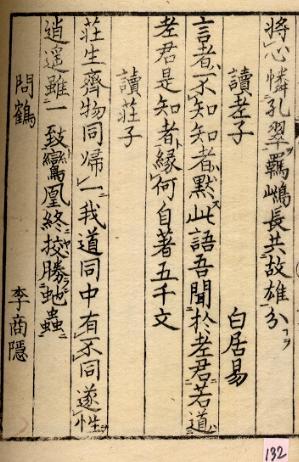 將心憐孔翠羈鴜長共故雄分
讀老子　白居易
言者不知知者默此語吾聞於老君若道
老君是知者縁何自著五千文
讀莊子
莊生齊物同歸一我道同中有不同遂性
逍遥雖一致鸞凰終挍勝虵蟲
問鶴　李商隱
132